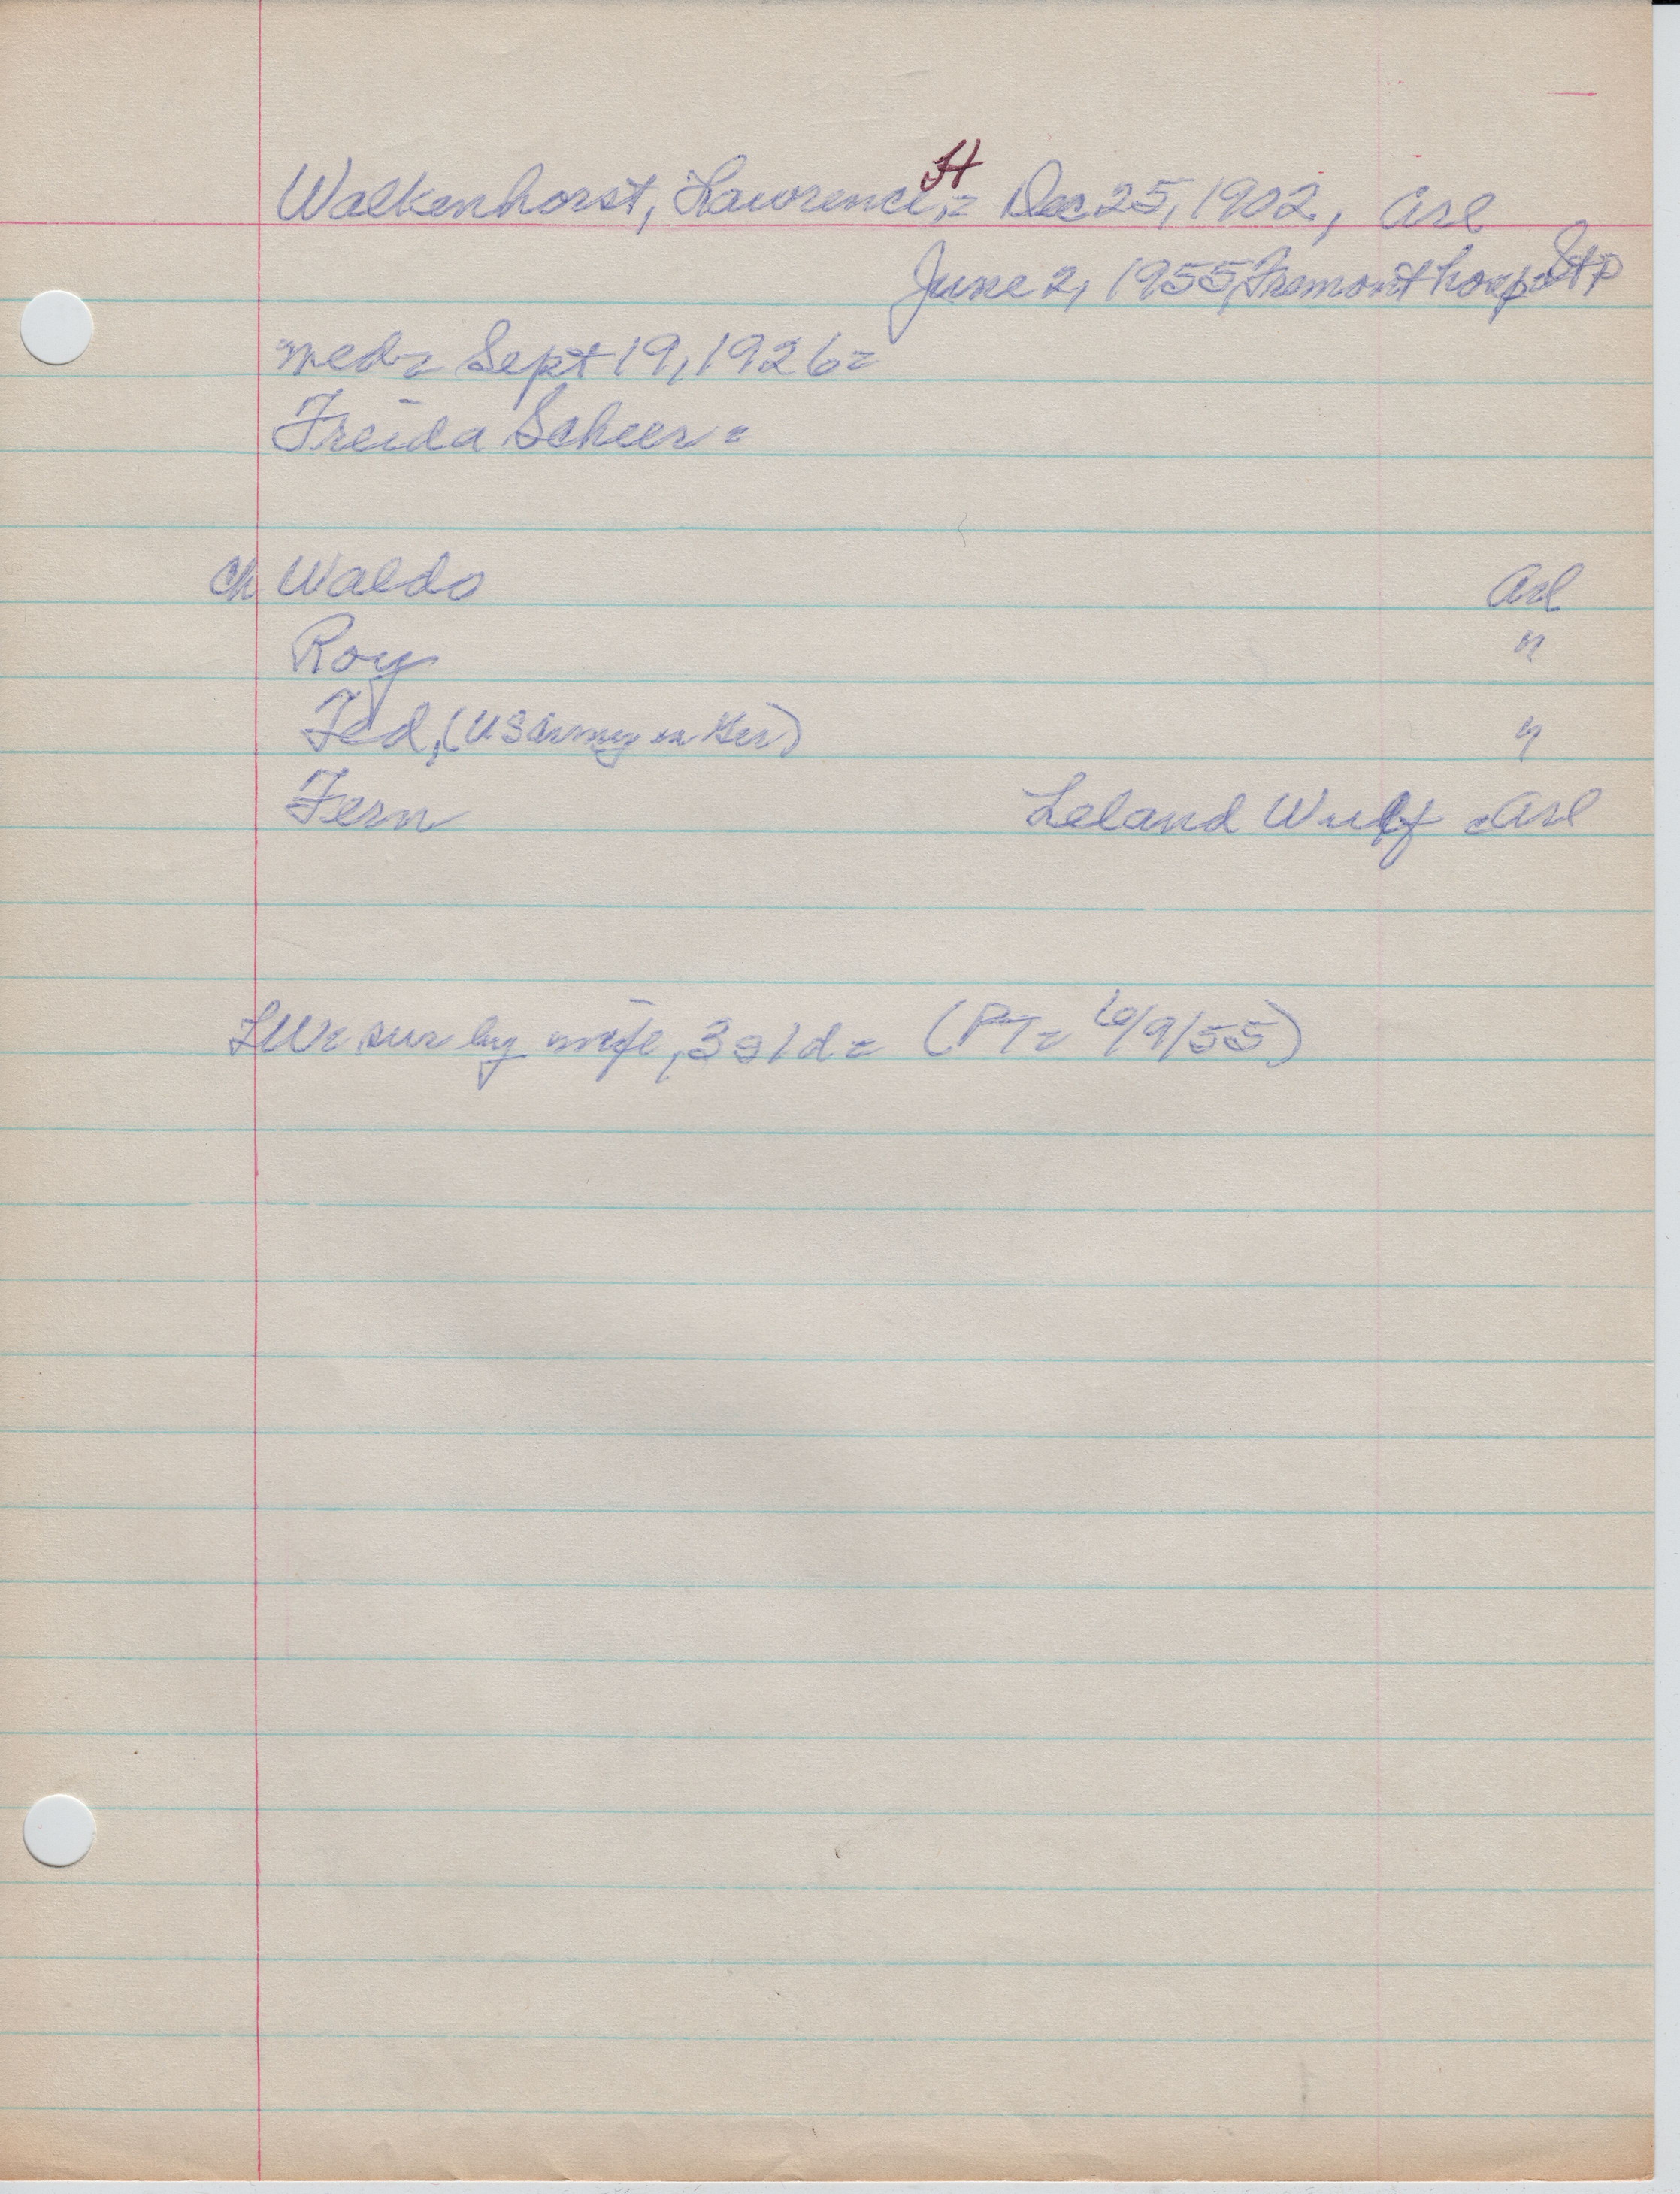 Walkenhorst, Lawrence H = Dec 25, 1902, Arl
June 2, 1955, Fremont hosp St P
med = Sept 19, 1926 =
Freida Scheer =
ch Waldo Arl
Roy "
Ted, (US Army in Ger) "
Fern Leland Wulf Arl
LW = sur by wife, 3 s 1 d = (PT = 6/9/55)